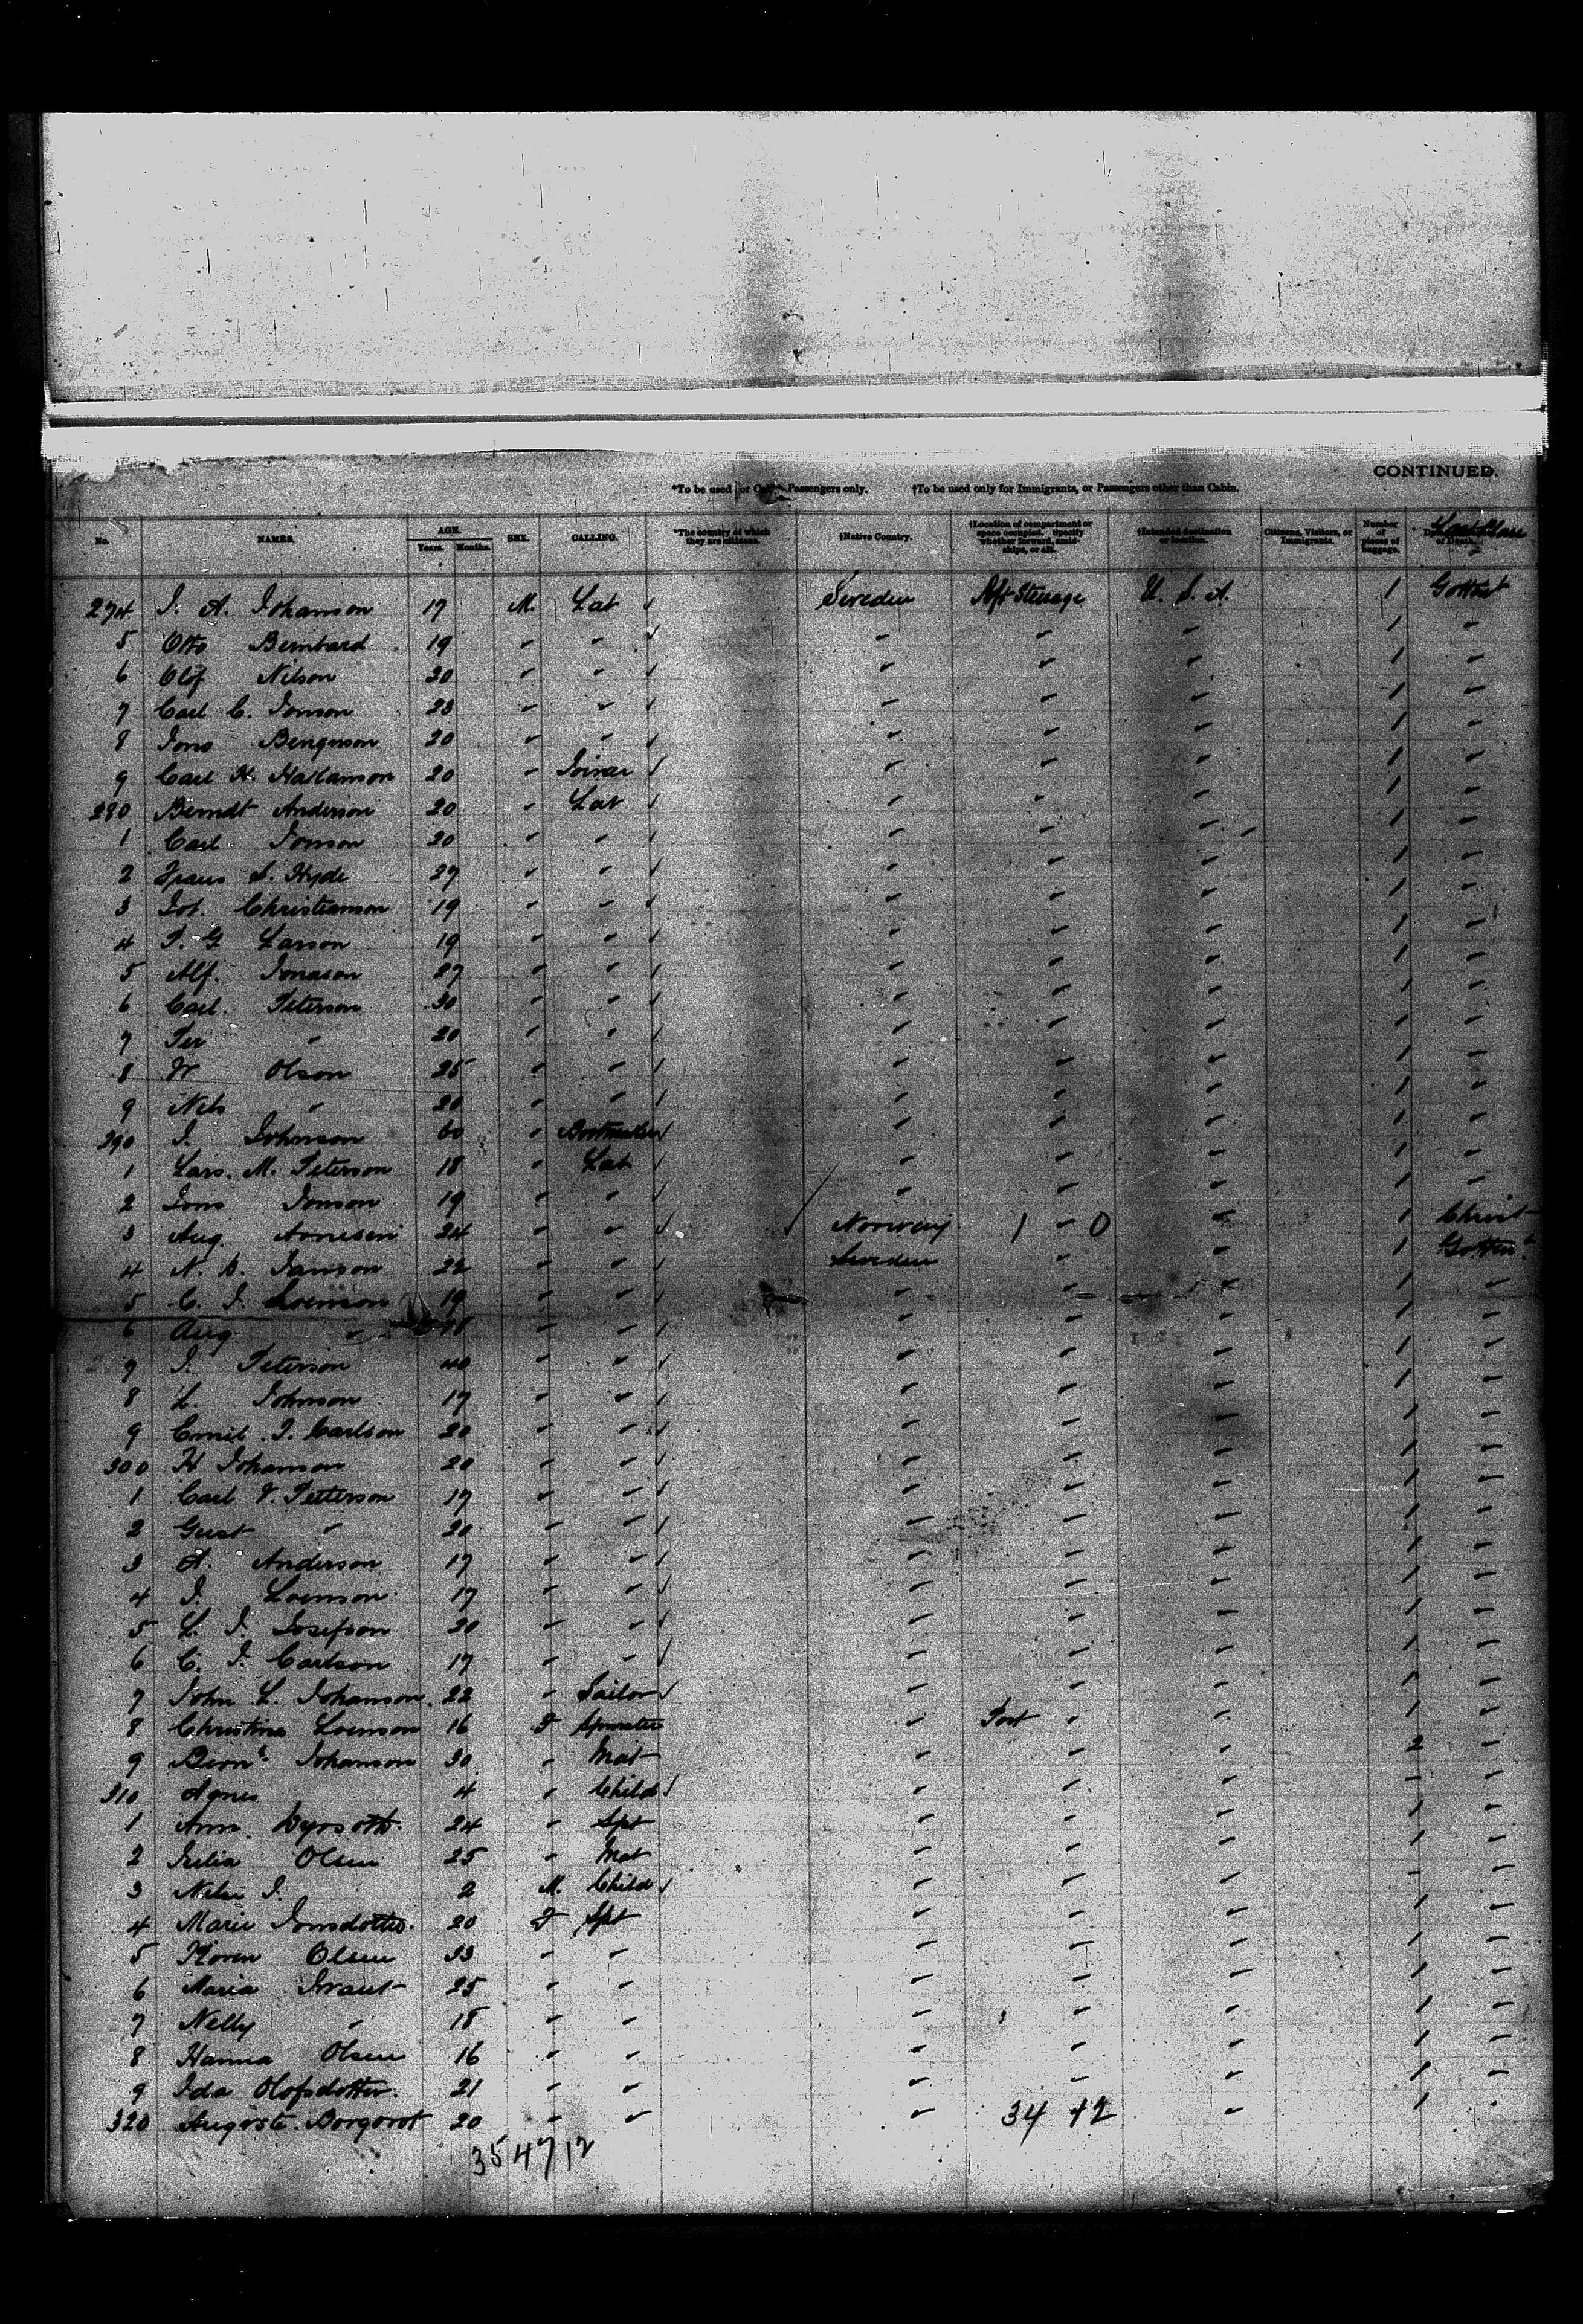 CONTINUED.
*To be used for Cabin Passengers only. †To be used only for Immigrants, or Passengers other than Cabin.
No. NAMES. AGE. Years. Months. SEX. CALLING. *The country of which they are citizens. †Native Country. †Location of compartment or space occupied. Specify whether forward, amidships, or aft. †Intended destination or location. Citizens, Visitors, or Immigrants. Number of pieces of baggage. of Death.
274 J. A. Johanson 17 M. Lab ✓ Sweden Aft Steerage U. S. A. 1
5 Otto Bernhard 19 " " ✓ " " " 1 "
6 Olof Nilson 20 " " ✓ " " " 1 "
7 Carl C. Jonson 23 " " ✓ " " " 1 "
8 Jons 20 " " ✓ " " " 1 "
9 Carl H. 20 " ✓ " " " 1 "
280 Berndt Anderson 20 " Lab ✓ " " " 1 "
1 Carl Jonson 20 " " ✓ " " " 1 "
2 S. Hyde 27 " " ✓ " " " 1 "
3 Joh. Christianson 19 " " ✓ " " " 1 "
4 P. G Larson 19 " " ✓ " " " 1 "
5 Alf. Jonason 27 " " ✓ " " " 1 "
6 Carl. Peterson 30 " " ✓ " " " 1 "
7 Per " 20 " " ✓ " " " 1 "
8 Olson 25 " " ✓ " " " 1 "
9 Nels " 20 " " ✓ " " " 1 "
290 J. Johnson 60 " Bootmaker ✓ " " " 1 "
1 Lars. M. Peterson 18 " Lab ✓ " " " 1 "
2 Jons Jonson 19 " " ✓ " " " 1 "
3 Aug. 24 " " ✓ Norway 1 - 0 " 1 Christ
4 N. Janson 22 " " ✓ Sweden " " 1
5 C. J. 19 " " ✓ " " " 1 "
6 Aug " " " ✓ " " " 1 "
7 J. Peterson 40 " " ✓ " " " 1 "
8 L. Johnson 17 " " ✓ " " " 1 "
9 Emil J. Carlson 20 " " ✓ " " " 1 "
300 H Johanson 20 " " ✓ " " " 1 "
1 Carl V. Petterson 17 " " ✓ " " " 1 "
2 Gust " 20 " " ✓ " " " 1 "
3 A. Anderson 17 " " ✓ " " " 1 "
4 J. 17 " " ✓ " " " 1 "
5 L. J. Josefson 20 " " ✓ " " " 1 "
6 C. J. Carlson 17 " " ✓ " " " 1 "
7 John L. Johanson 22 " Sailor ✓ " " " 1 "
8 Christina 16 F Spinster " Port " " 1 "
9 Johanson 30 " Mat " " " 2 "
310 Agnes 4 " Child ✓ " " " - "
1 Ann 24 " Spt " " " 1 "
2 Olsen 25 " Mat " " " 1 "
3 J. 2 M. Child ✓ " " " - "
4 Marie Jonsdotter. 20 F Spt " " " 1 "
5 Olsen 33 " " " " " 1 "
6 Maria 25 " " " " " 1 "
7 Nelly " 18 " " " " " 1 "
8 Hanna Olsen 16 " " " " " 1 "
9 Ida Olofsdotter. 21 " " " " " 1 "
320 20 " " " 34 +2 " 1
354712